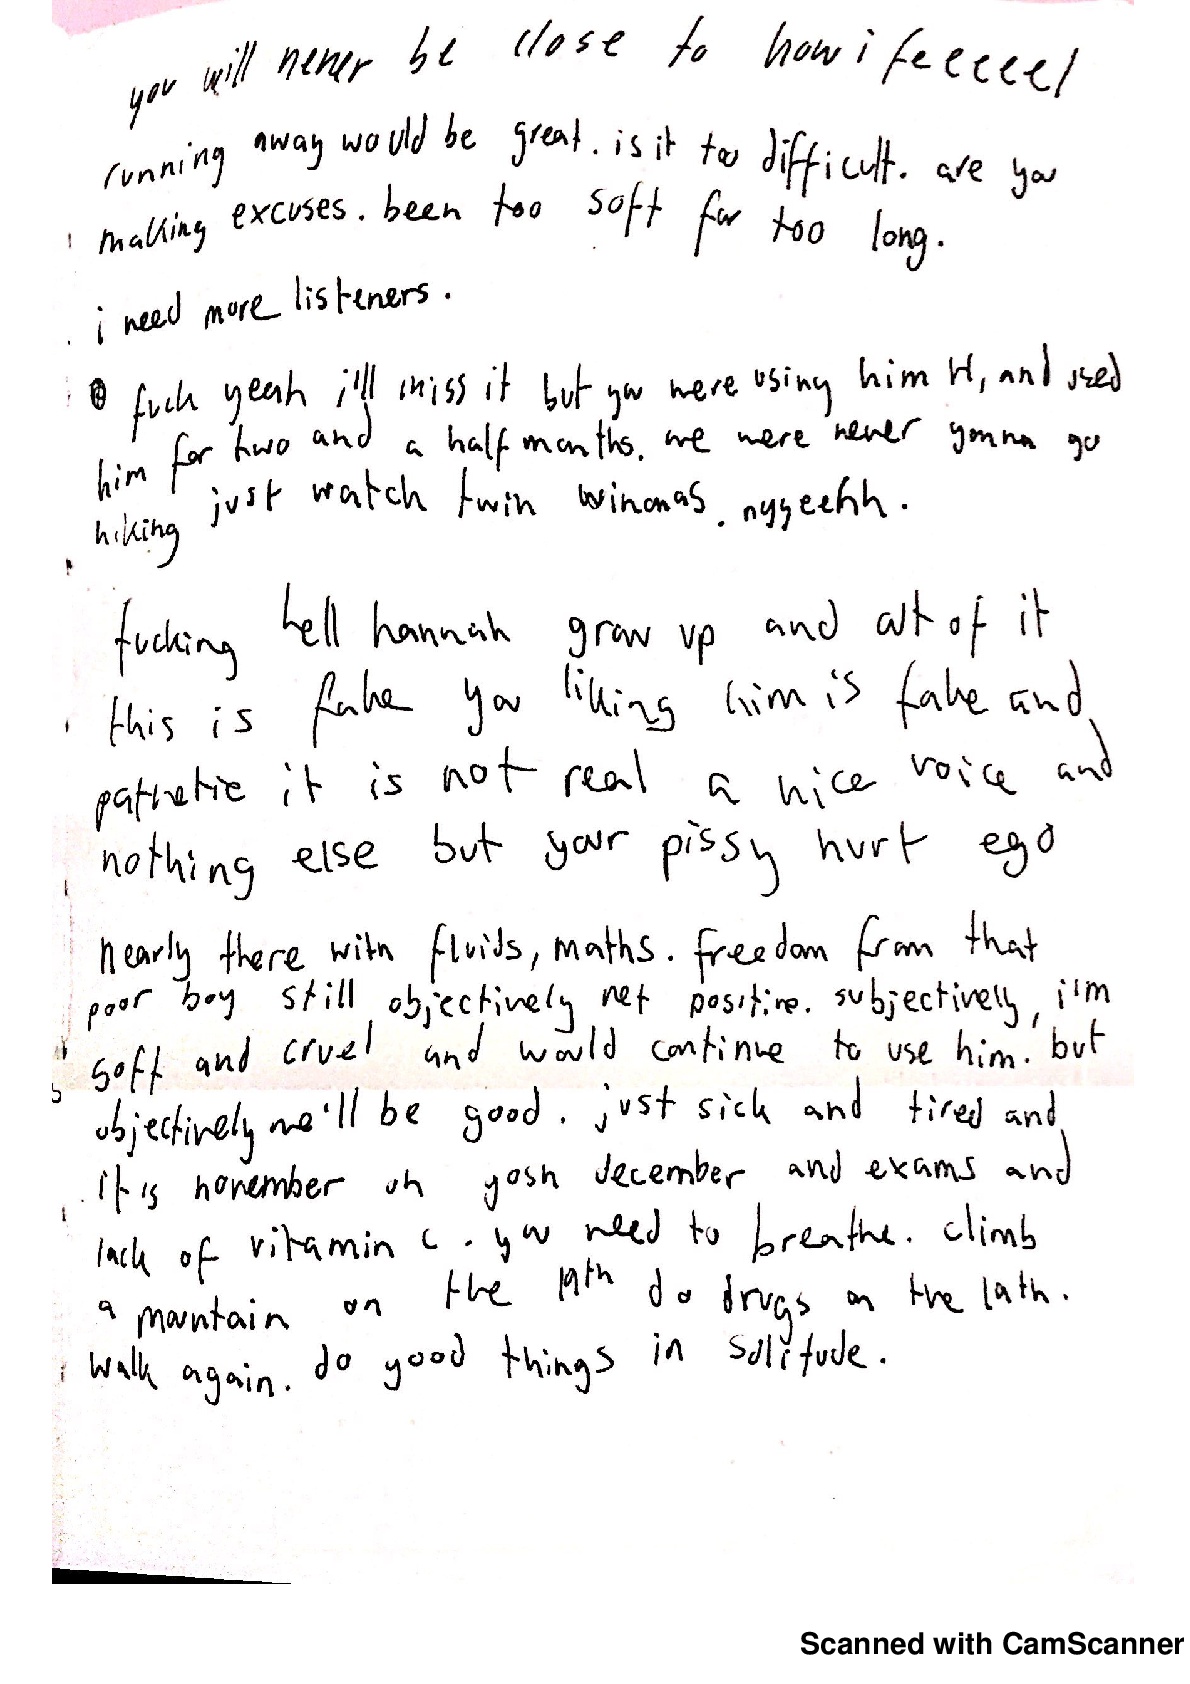 you will never be close to how i feeeeel
running away would be great. is it too difficult. are you
making excuses. been too soft for too long.
i need more listeners.
fuck yeah i'll miss it but you were using him H, and used
him for two and a half months. we were never gonna go
hiking just watch twin winonas. nyyeehh.
fucking hell hannah grow up and out of it
this is fake you liking him is fake and
pathetic it is not real a nice voice and
nothing else but your pissy hurt ego
nearly there with fluids, maths. freedom from that
poor boy still objectively net positive. subjectively, i'm
soft and cruel and would continue to use him. but
objectively we'll be good. just sick and tired and
it is november oh gosh december and exams and
lack of vitamin c. you need to breathe. climb
a mountain on the 19th do drugs on the
walk again. do good things in solitude.
Scanned with CamScanner